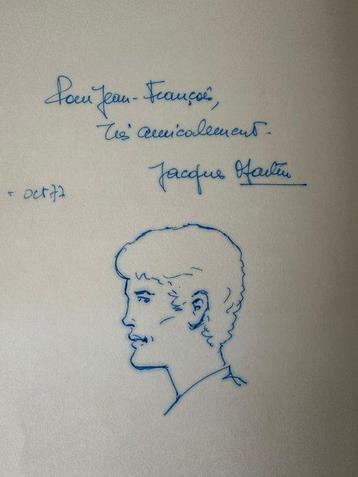 Pour Jean-François,
très amicalement.
Jacques Martin
oct 77